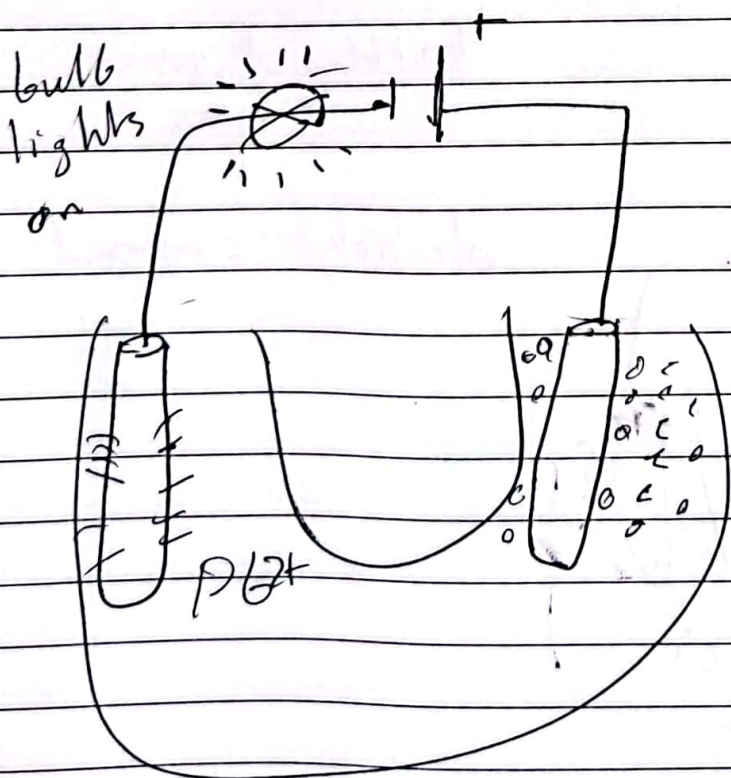 +
bulb
lights
on